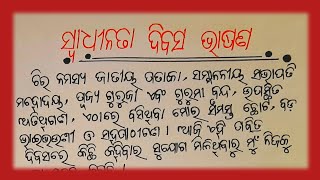 ସ୍ୱାଧୀନତା ଦିବସ ଭାଷଣ
ଚିର ନମସ୍ୟ ଜାତୀୟ ପତାକା, ସମ୍ମାନନୀୟ ସଭାପତି
ମହୋଦୟ, ପୂଜ୍ୟ ଗୁରୁଜୀ ଏବଂ ଗୁରୁମା ବୃନ୍ଦ, ଉପସ୍ଥିତ
ଅତିଥିଗଣ, ଏଠାରେ ବସିଥିବା ମୋର ସମସ୍ତ ଛୋଟ, ବଡ଼
ଭାଇଭଉଣୀ ଓ ସହପାଠୀଗଣ । ଆଜି ଏହି ପବିତ୍ର
ଦିବସରେ କିଛି କହିବାର ସୁଯୋଗ ମିଳିଥିବାରୁ ମୁଁ ନିଜକୁ